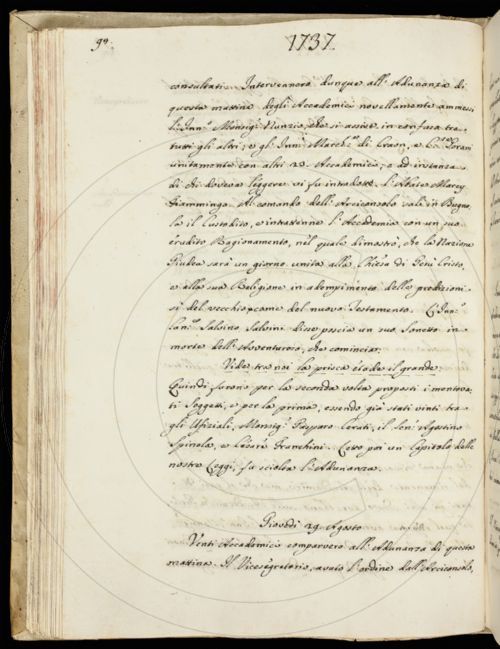 90.
1737.
consultati. Intervennero dunque all'Adunanza di
questa mattina degli Accademici novellamente ammessi
Monsig. Nunzio, che si assise in confuso tra
tutti gli altri, e gl' Marches. di Craon, e
unitamente con altri 29 Accademici; e ad instanza
di chi doveva leggere vi fu introdotto l'Abate Marcy
Fiammingo. Al comando dell'Arciconsolo salì in Bugno
la il Custodito, e intrattenne l'Accademia con un suo
erudito Ragionamento, nel quale dimostrò, che la Nazione
Giudea sarà un giorno unita alla Chiesa di Gesù Cristo,
e alla sua Religione in adempimento delle predizioni
sì del vecchio, come del nuovo Testamento.
Salvino Salvini disse poscia un suo Sonetto in
morte dell'Avventuroso, che comincia:
Vide tra noi la prisca etade il grande.
Quindi furono per la seconda volta proposti i mentova-
ti Soggetti, e per la prima, essendo già stati vinti tra
gli Ufiziali, Monsig. Gasparo Cerati, il Sen. Agostino
Spinola, e Franchini. Letto poi un Capitolo delle
nostre Leggi, fu sciolta l'Adunanza.
Giovedì 29 Agosto
Venti Accademici comparvero all'Adunanza di questa
mattina. Il Vicesegretario, avuto l'ordine dall'Arciconsolo,